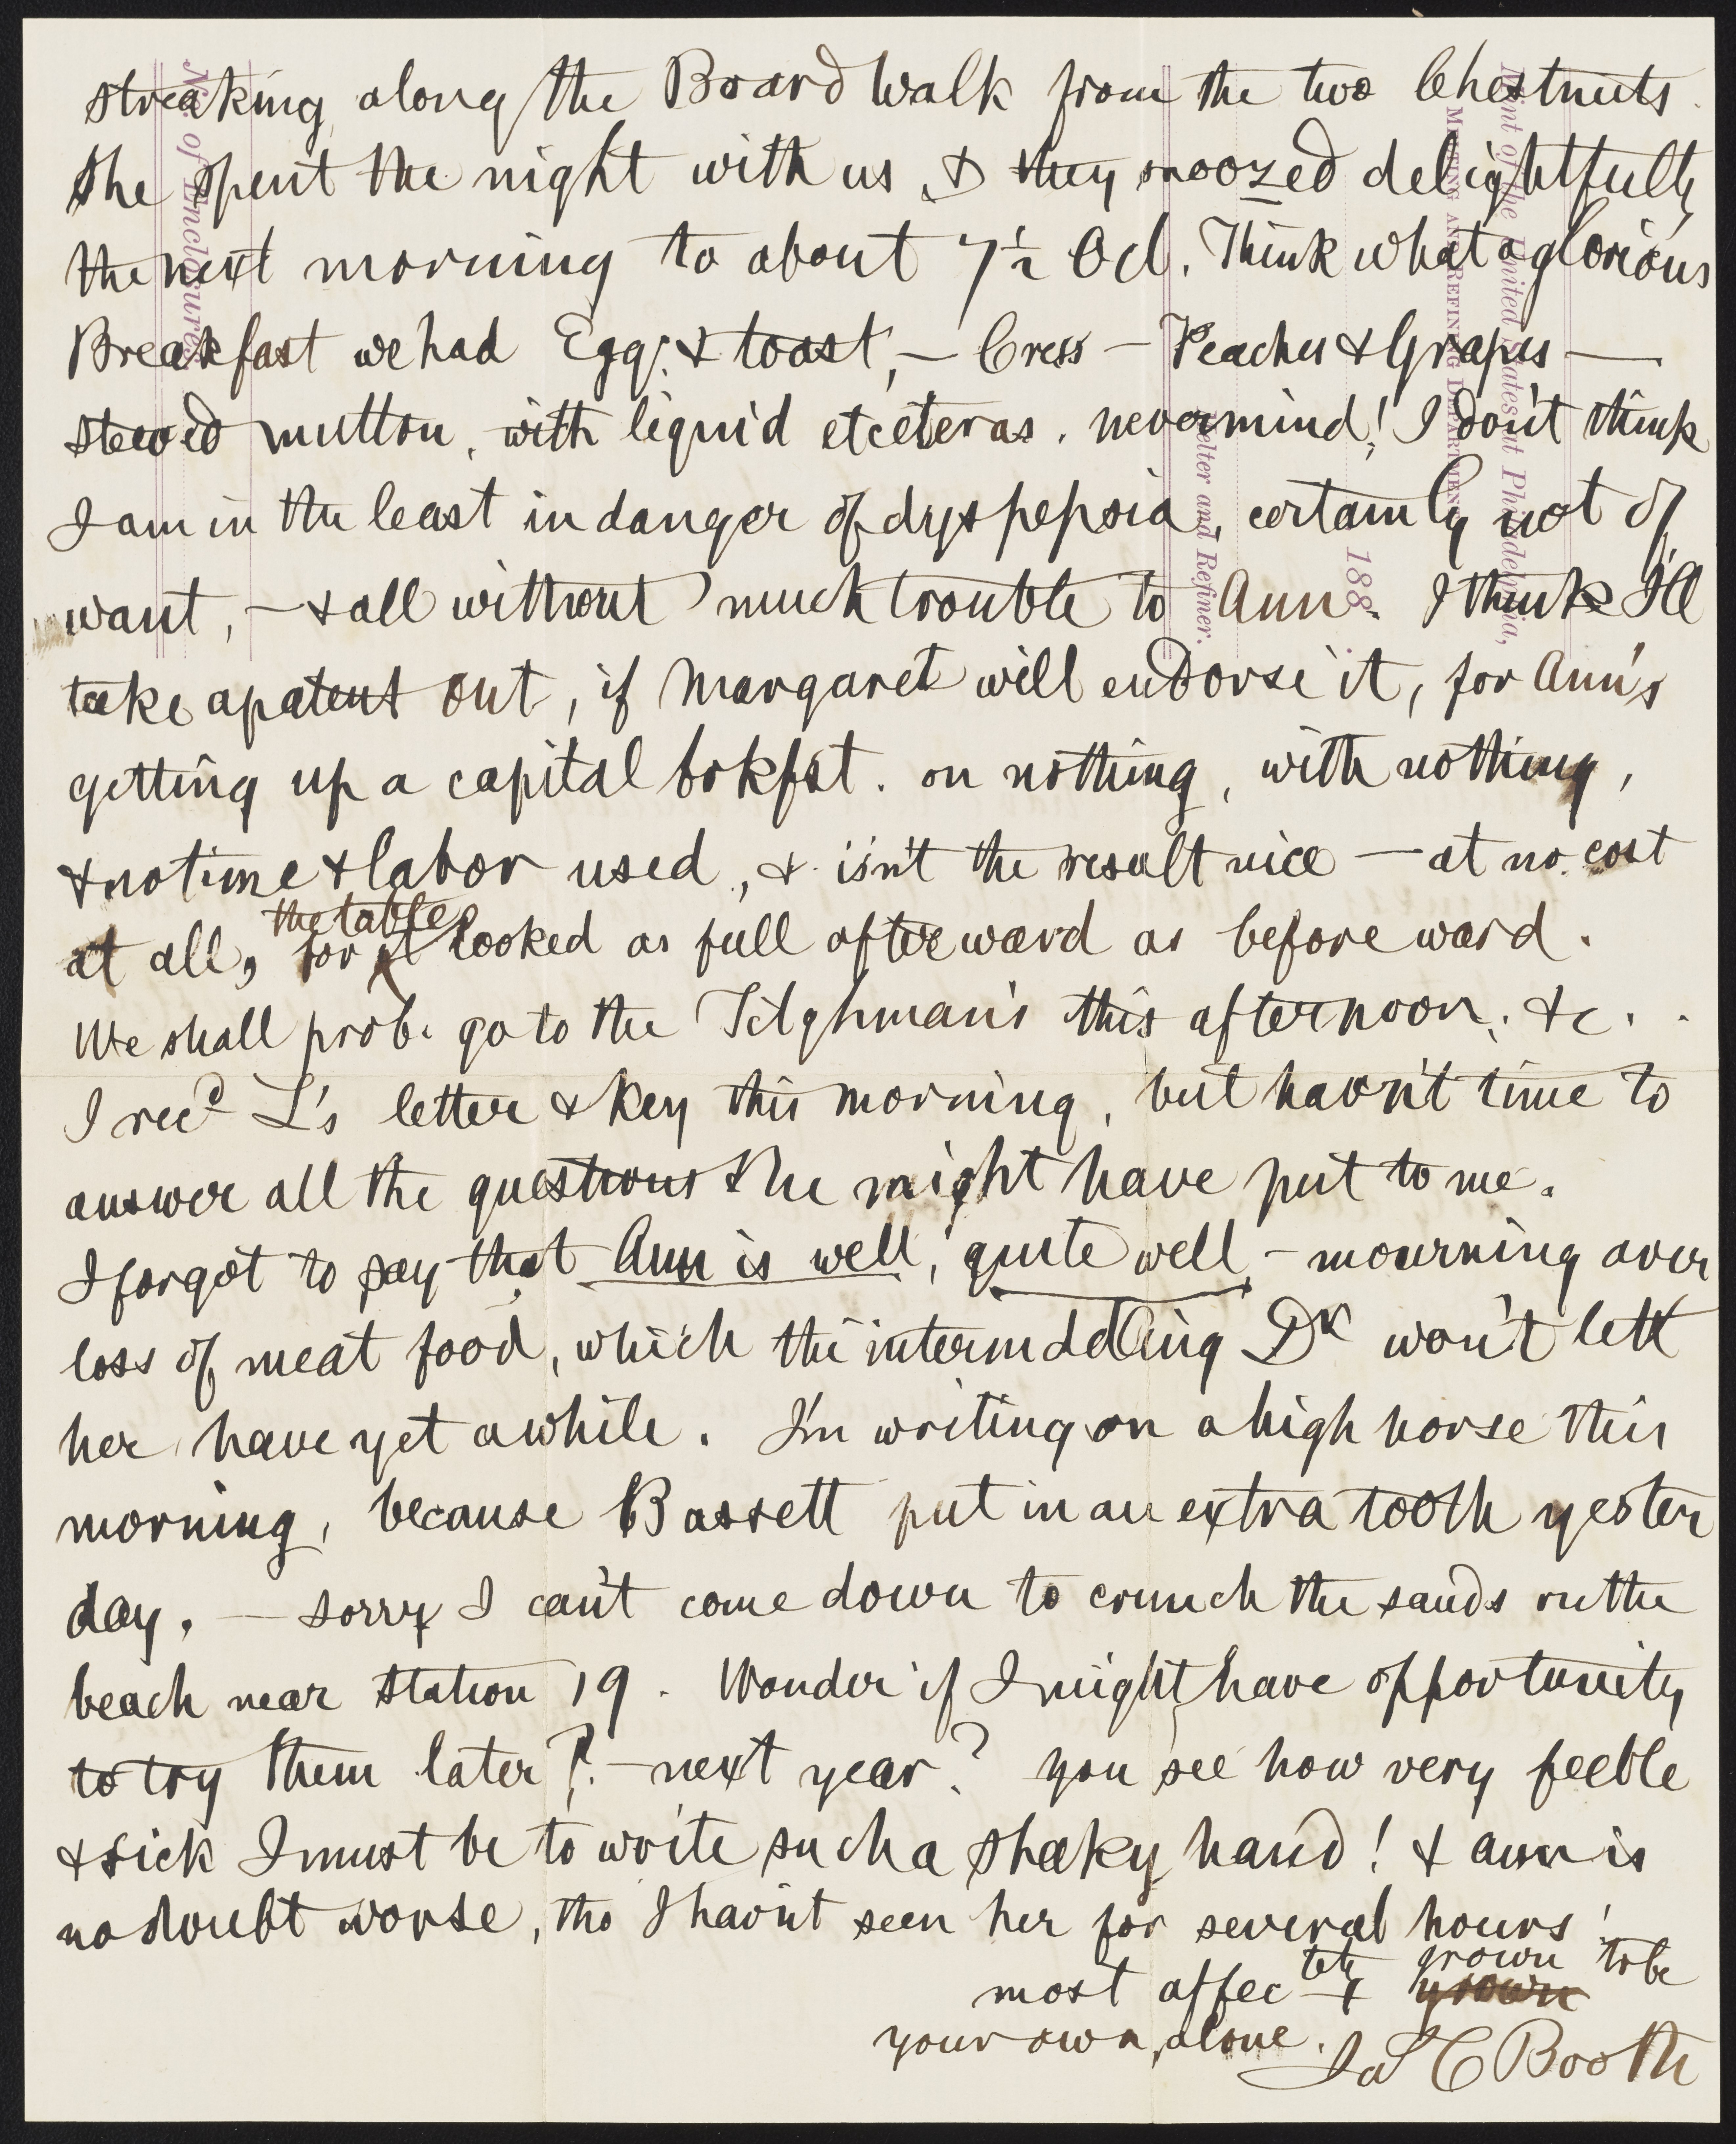 streaking along the Board Walk from the two Chestnuts.
She spent the night with us, & they snoozed delightfully
the next morning to about 7½ Ocl. Think what a glorious
Breakfast we had Egg, & toast, — Cress — Peaches & Grapes —
stewed mutton, with liquid etceteras. nevermind! I don't think
I am in the least in danger of dyspepsia, certainly not of
want, — & all without much trouble to Ann. I think I'll
take a patent out, if Margaret will endorse it, for Ann's
getting up a capital brkfst. on nothing, with nothing,
& no time & labor used, & isn't the result nice — at no cost
the table
at all, for it looked as full afterward as beforeward.
We shall prob. go to the Tilghman's this afternoon, &c. .
I recd L's letter & key this morning, but havn't time to
answer all the questions she might have put to me.
I forgot to say that Ann is well, quite well, — mourning over
loss of meat food, which the intermddling Dr won't lett
her have yet awhile. I'm writing on a high horse this
morning, because Bassett put in an extra tooth yester
day. — sorry I can't come down to crunch the sands on the
beach near station 19. Wonder if I might have opportunity
to try them later? — next year? you see how very feeble
& sick I must be to write such a shaky hand! & ann is
no doubt worse, tho I havn't seen her for several hours!
most affectely & grown to be
your own, alone.
Jas C Booth
Mint of the United States at Philadelphia,
MELTING AND REFINING DEPARTMENT
188
Melter and Refiner.
No. of Enclosures